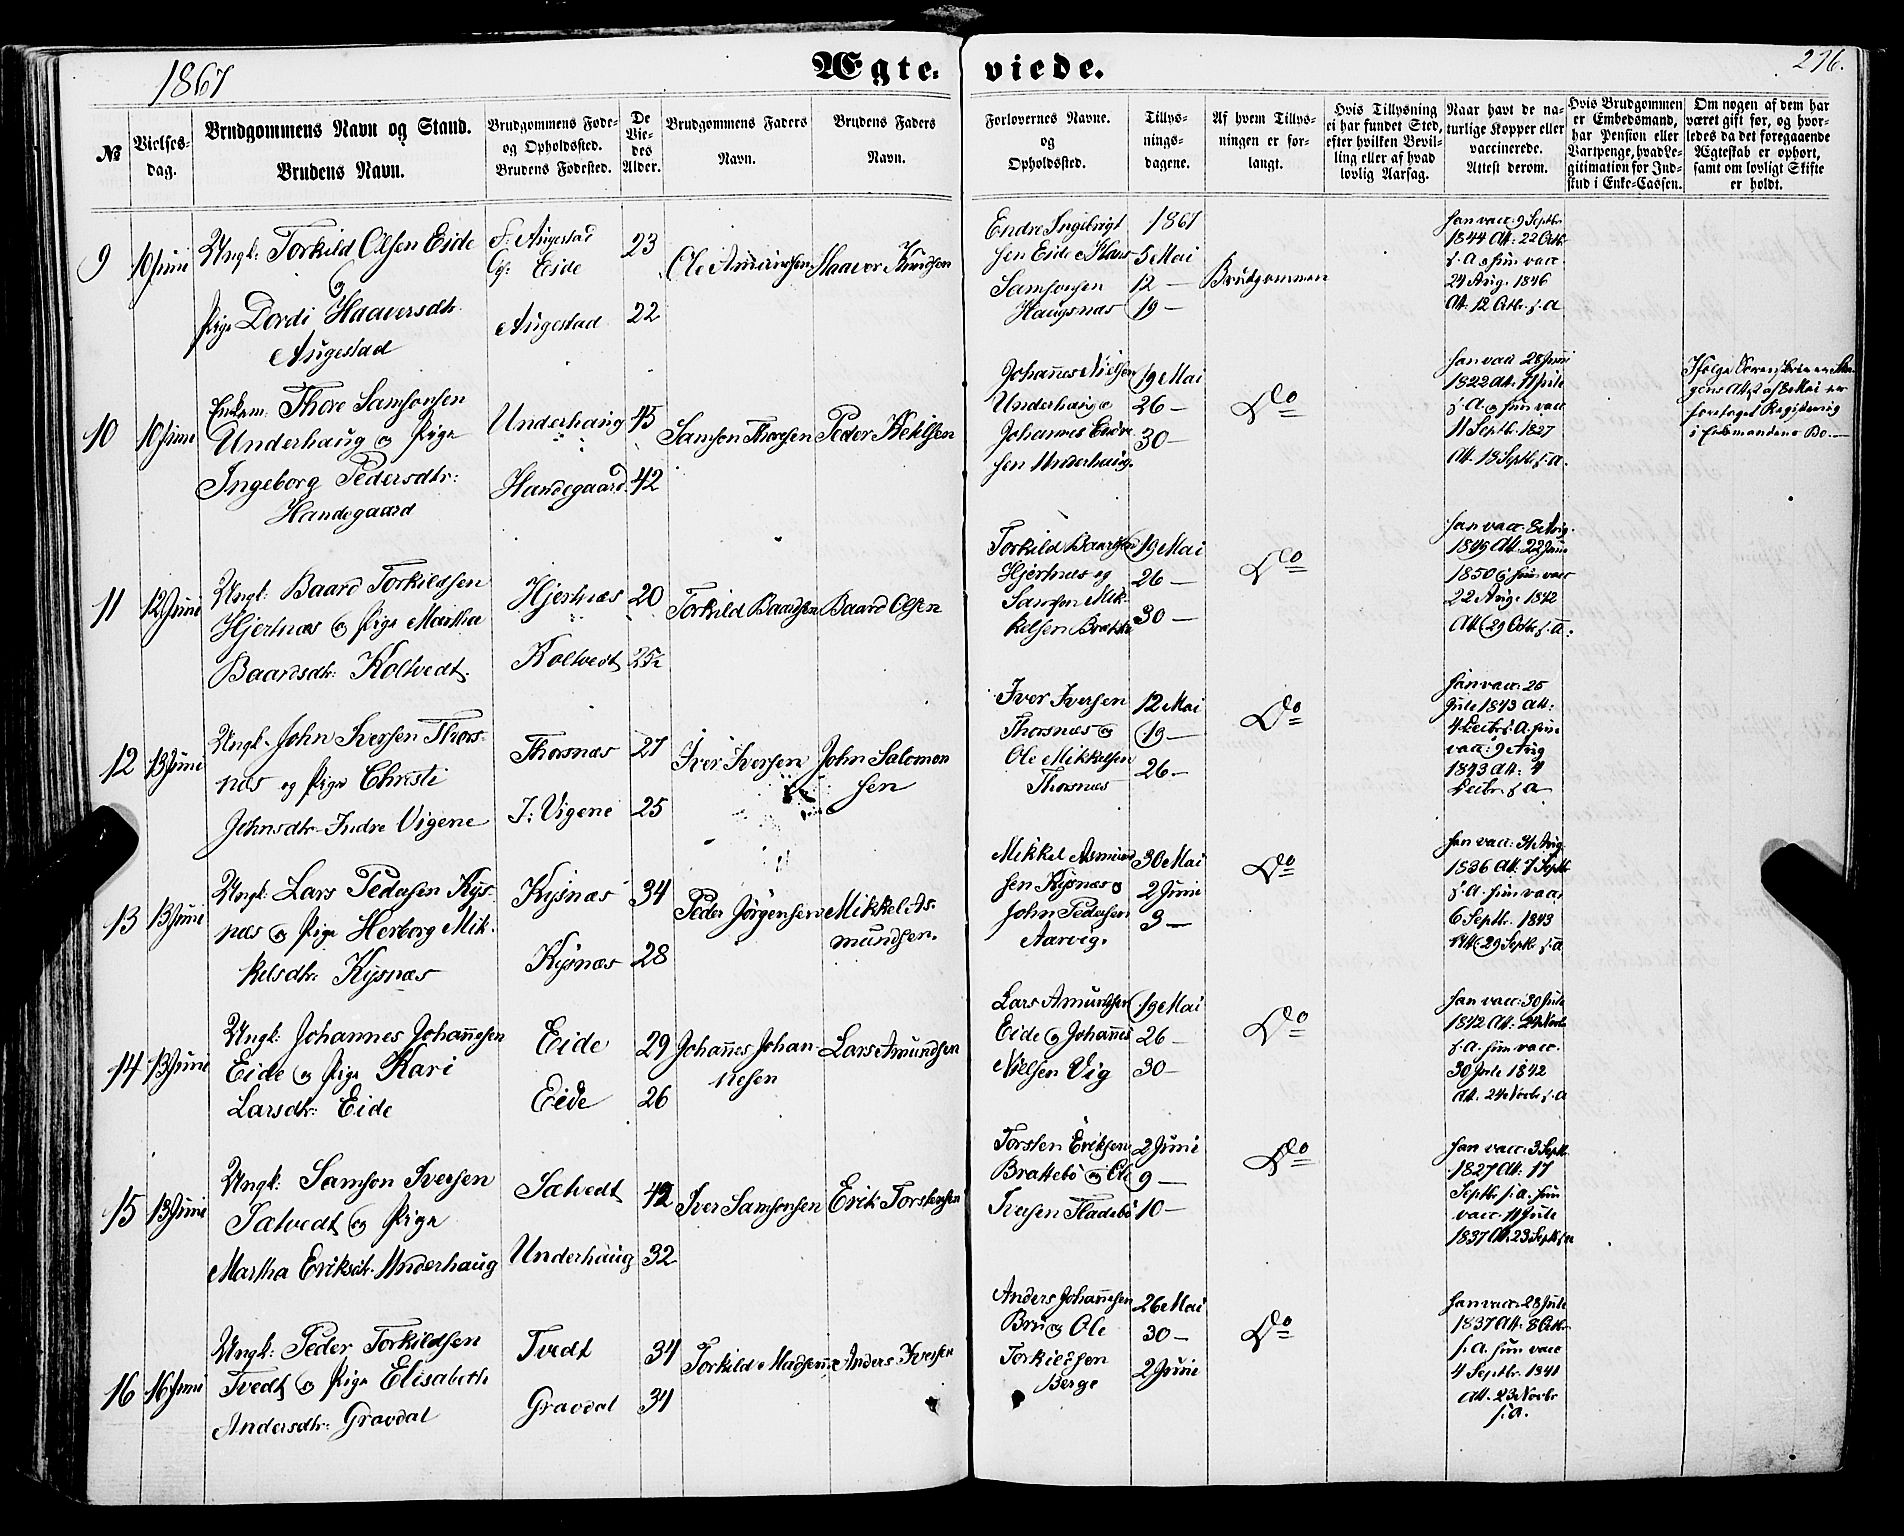 1867
Ægte-viede.
276.
№
Vielses-
dag.
Brudgommens Navn og Stand.
Brudens Navn.
Brudgommens Føde-
og Opholdssted.
Brudens Fødested.
De
Vie-
des
Alder.
Brudgommens Faders
Navn.
Brudens Faders
Navn.
Forlovernes Navne.
og
Opholdssted.
Tillys-
nings-
dagene.
Af hvem Tillys-
ningen er for-
langt.
Hvis Tillysning
ei har fundet Sted,
efter hvilken Bevil-
ling eller af hvad
lovlig Aarsag.
Naar havt de na-
turlige Kopper eller
vaccinerede.
Attest derom.
Hvis Brudgommen
er Embedsmand,
har Pension eller
Vartpenge, hvad Le-
gitimation for Ind-
skud i Enke-Cassen.
Om nogen af dem har
været gift før, og hvor-
ledes da det foregaaende
Ægteskab er ophørt,
samt om lovligt Skifte
er holdt.
9
10 Juni
Ungk: Torkild Olsen Eide
og
Pige Dordi Haaversdtr.
Augestad
F: Augestad
Eide
Augestad
23
22
Ole Amundsen
Haavor Knudsen
Endre Ingebrigt
sen Eide Hans
Samsonsen
Haugsnæs
1867
5 Mai
12 —
19 —
Brudgommen
han vacc: 9 Septbr
1844 Att: 22 Octbr
s. A. hun vacc
24 Aug. 1846
Att. 12 Octbr. s. a
10
10 Juni
Enkem: Thore Samsonsen
Underhaug og Pige
Ingeborg Pedersdtr:
Handegaard
Underhaug
Handegaard
45
42
Samson Thoresen
Peder Ketilsen
Johannes Nielsen
Underhaug og
Johannes Endre
sen Underhaug.
19 Mai
26 —
30 —
Do
han vacc 28 Juni
1822 Att: 7 Juli
s. A. og hun vacc
11 Septb. 1827
Att. 13 Septb. s. a.
Ifølge Sorenskriver
gens Att. af 8 Mai er
foretaget Registering
i Enkemandens Bo. —
11
12 Juni
Ungk: Baard Torkildsen
Hjertnæs og Pige Martha
Baardsdtr: Koltvedt.
Hjertnæs
Koltvedt
20
25½
Torkild Baardsen
Baard Olsen
Torkild Baardsen
Hjertnæs og
Samson Mik-
kelsen
19 Mai
26 —
30 —
Do
han vacc: 8 Aug.
1849 Att. 22 Juni
1850 og hun vacc
22 Aug. 1842
Att 29 Octbr. s. a.
12
13 Juni
Ungk. John Iversen Thors-
næs og Pige Christi
Johnsdtr. Indre Vigene
Thorsnæs
I: Vigene
27
25
Iver Iversen
John Salomon
sen
Iver Iversen
Thorsnæs og
Ole Mikkelsen
Thorsnæs
12 Mai
19 —
26 —
Do
han vacc: 25
Juli 1843 Att:
4 Decbr s. A. hun
vacc: 9 Aug
1843 Att: 4
Decbr. s. a
13
13 Juni
Ungk: Lars Pedersen Kys-
næs og Pige Herborg Mik-
kelsdtr: Kysnæs
Kysnæs
Kysnæs
34
28
Peder Jörgensen
Mikkel As-
mundsen.
Mikkel Asmund
sen Kysnæs og
John Pedersen
Aarvig.
30 Mai
2 Juni
9 —
Do
han vacc. 31 Aug
1836 Att. 7 Septbr
s. A. hun vacc
6 Septbr. 1843
Att 29 Septbr. s. a
14
13 Juni
Ungk: Johannes Johannesen
Eide og Pige Kari
Larsdtr: Eide
Eide
Eide
29
26
Johannes Johan-
nesen
Lars Amundsen
Lars Amundsen
Eide og Johannes
Nielsen Vig
19 Mai
26 —
30 —
Do
han vacc: 30 Juli
1842 Att. 24 Novbr
s. A. hun vacc.
30 Juli 1842
Att. 24 Novbr. s. a
15
13 Juni
Ungk: Samson Iversen
Sætvedt og Pige
Martha Eriksdtr. Underhaug
Sætvedt
Underhaug
42
32
Iver Samsonsen
Erik Torstensen
Torsten Eriksen
Brattebö og Ole
Iversen Fladebö
2 Juni
9 —
10 —
Do
han vacc: 3 Septbr
1827 Att. 17
Septbr. s. a. hun
vacc. 11 Juli
1837 Att. 23 Septbr s. a
16
16 Juni
Ungk: Peder Torkildsen
Tvedt og Pige Elisabeth
Andersdtr: Gravdal
Tvedt
Gravdal
34
34
Torkild Madsen
Anders Iversen
Anders Johannesen
Bru og Ole
Torkildsen
Berge
26 Mai
30 —
2 Juni
Do
han vacc. 28 Juli
1837 Att. 8 Octbr
s. a. hun vacc
4 Septbr. 1841
Att. 23 Novbr
s. a.